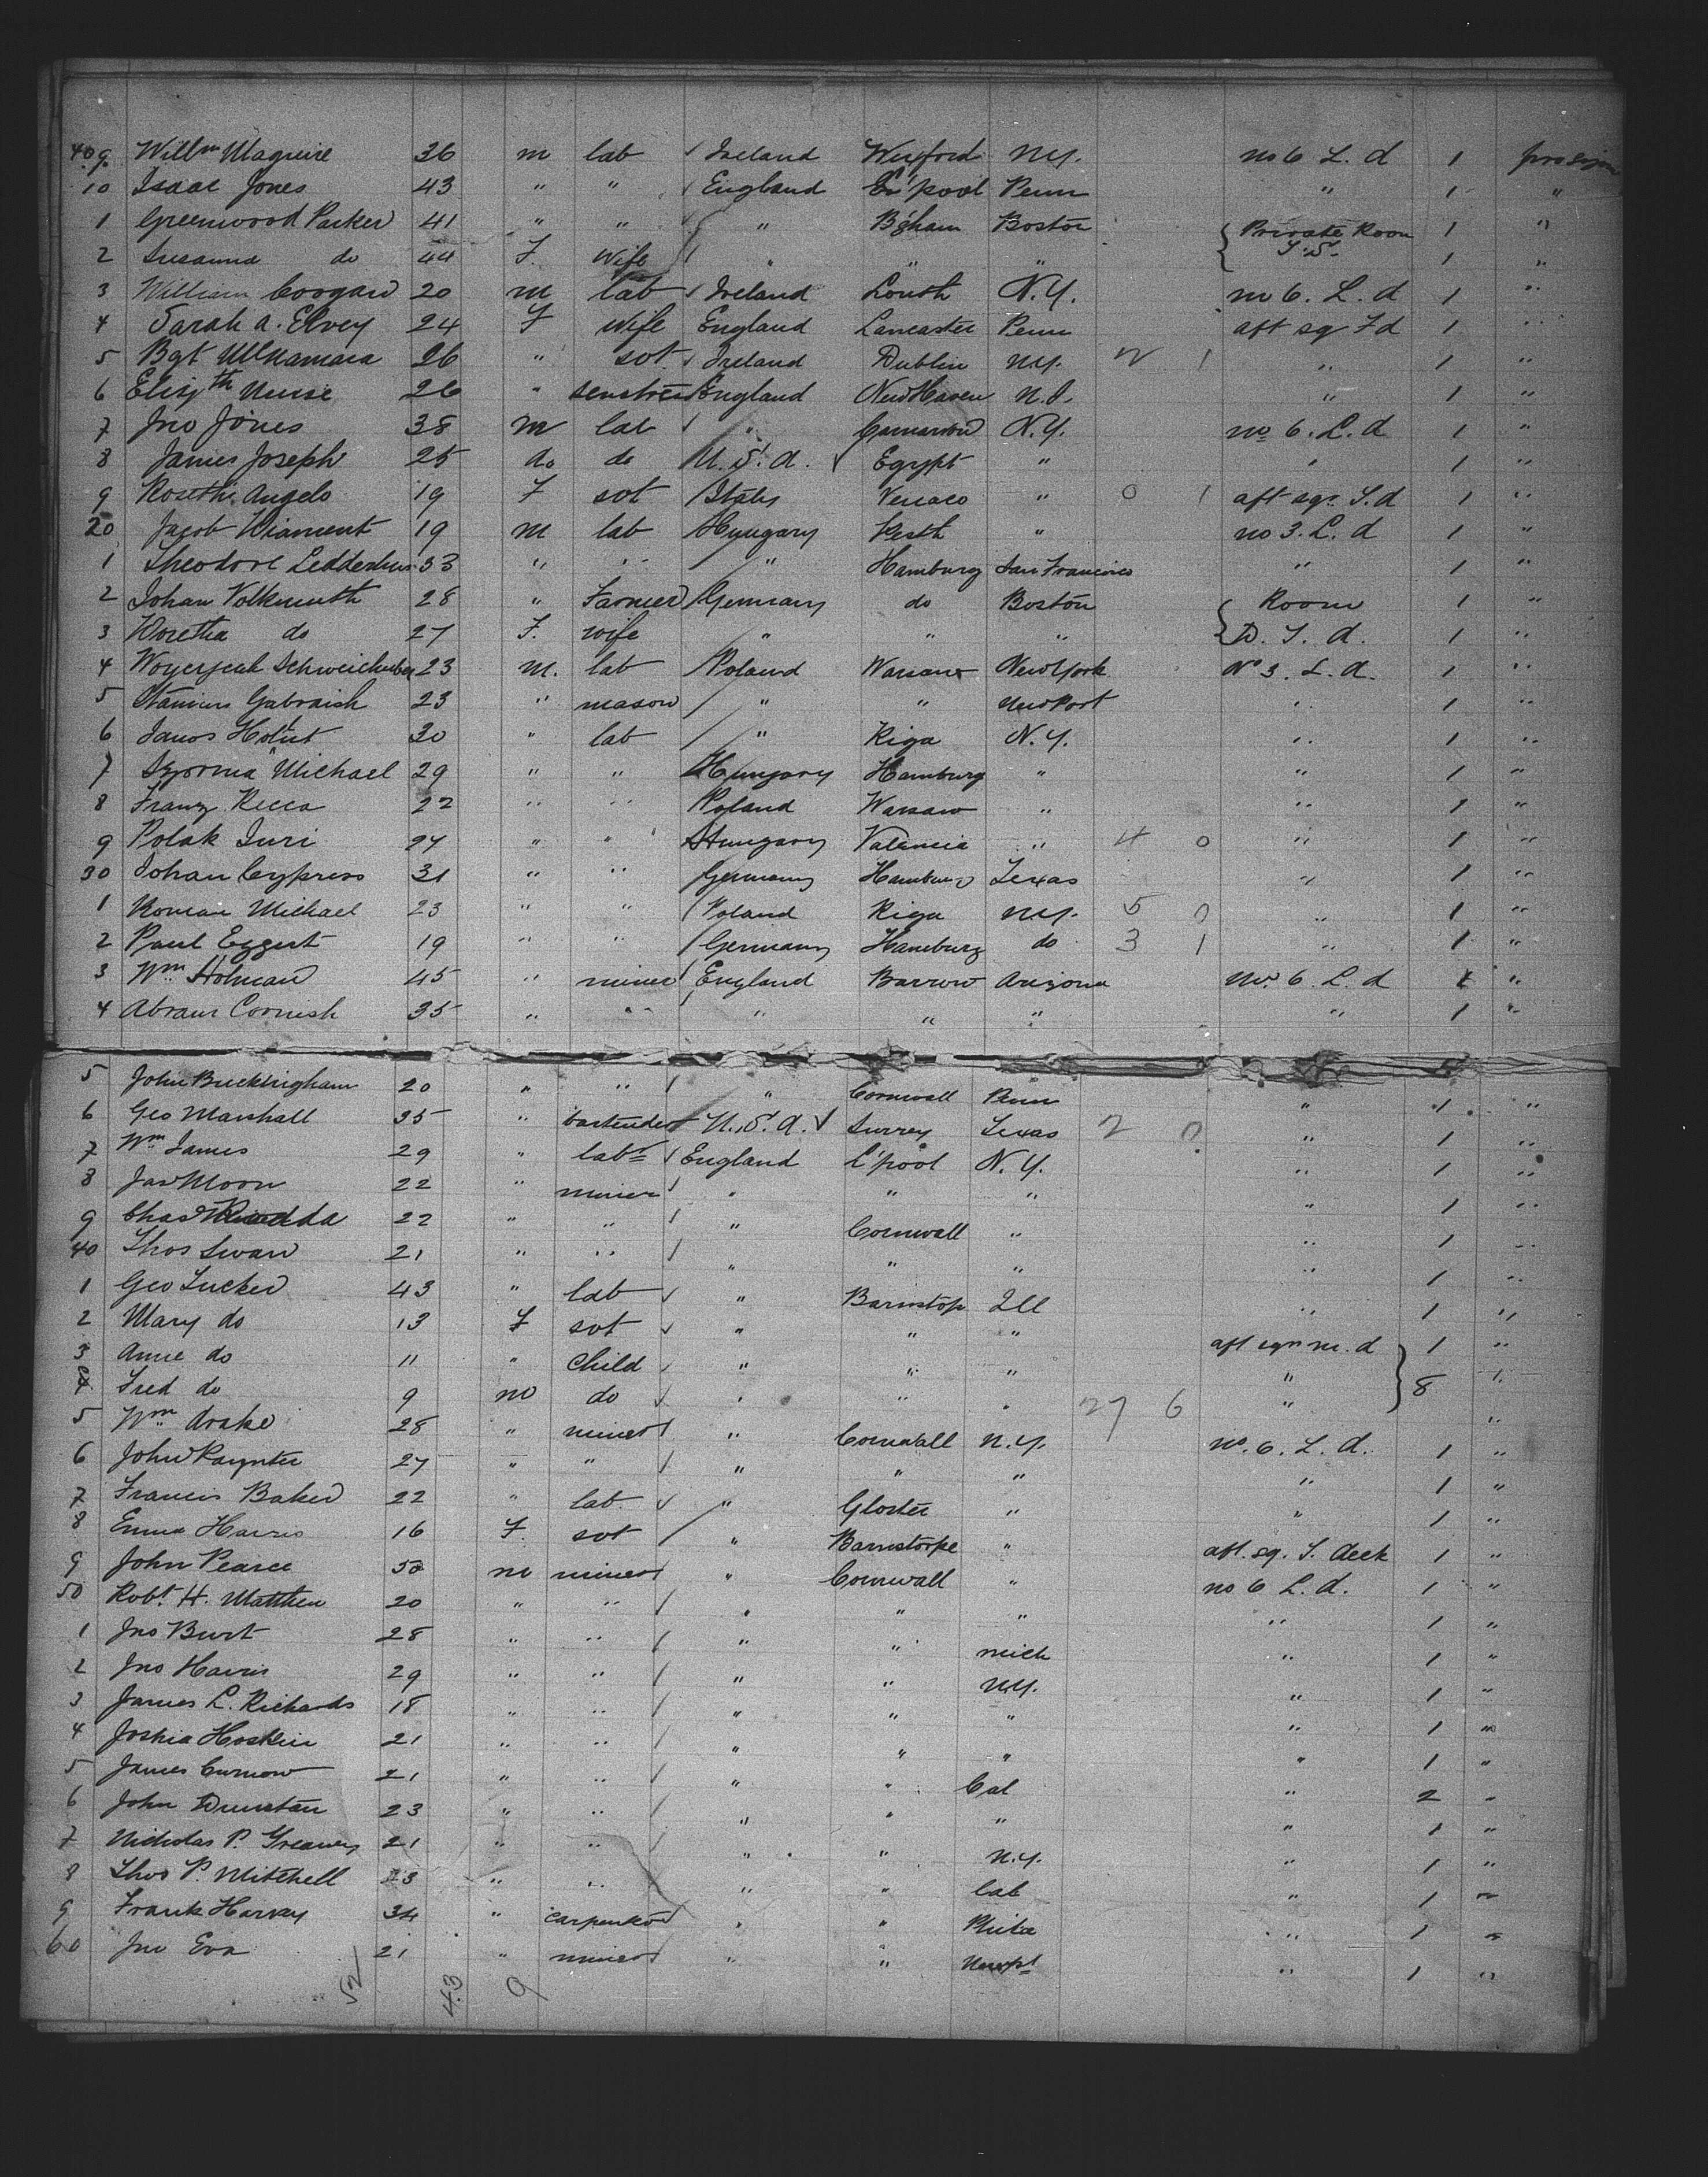 409 Willm Maguire 36 m lab Ireland Wexford N.Y. no 6 L. d 1
10 Isaac Jones 43 " " England L'pool Penn " 1 "
1 Greenwood Parker 41 " " " B'ham Boston Private Room 1 "
2 Susanna do 44 F. Wife " " " S.S. 1 "
3 William Coogan 20 m lab Ireland Louth N.Y. no 6. L. d 1 "
4 Sarah A. Elvey 24 F Wife England Lancaster Penn aft sq 1 "
5 Bgt McNamara 26 " sot Ireland Dublin N.Y. 2 1 " 1 "
6 Elizth Nurse 26 " England New Haven " 1 "
7 Jno Jones 38 m lab " Carnarvon N.Y. no 6. L. d 1 "
8 James Joseph 25 do do U.S.A. Egypt " " 1 "
9 Angelo 19 F sot Italy " 0 1 aft sqr S. d 1 "
20 Jacob 19 m lab Hungary Pesth " no 3. L. d 1 "
1 Theodore 33 " " " Hamburg San Francisco " 1 "
2 Johan Volkmuth 28 " Farmer Germany do Boston Room 1 "
3 Doretha do 27 F. wife " " " D. S. d. 1 "
4 23 m. lab Poland Warsaw New York No 3. L. d. 1 "
5 23 " mason " " New Port " 1 "
6 Janos 30 " lab " Riga N.Y. " 1 "
7 Michael 29 " " Hungary Hamburg " " 1 "
8 Franz Recca 22 " " Poland Warsaw " " 1 "
9 Polak Juri 27 " " Hungary Valencia " 4 0 " 1 "
30 Johan Cypress 31 " " Germany Hamburg Texas " 1 "
1 Roman Michael 23 " " Poland Riga N.Y. 5 0 " 1 "
2 Paul Eggert 19 " " Germany Hamburg do 3 1 " 1 "
3 Wm Holman 45 " miner England Barrow Arizona No. 6. L. d 1 "
4 Abram Cornish 35 " " " " " " 1 "
5 John Buckingham 20 " " " Cornwall Penn " 1 "
6 Geo Marshall 35 " bartender U.S.A. Surrey Texas 2 0 " 1 "
7 Wm James 29 " labr England L'pool N.Y. " 1 "
8 Jas Moon 22 " miner " " " " 1 "
9 Chas 22 " " " Cornwall " " 1 "
40 Thos Swan 21 " " " " " " 1 "
1 Geo Tucker 43 " lab " Barnstop Ill " 1 "
2 Mary do 13 F sot " " " aft sqr m. d 1 "
3 Annie do 11 " child " " " " 8 "
4 Fred do 9 m do " " " 27 6 " "
5 Wm Drake 28 " miner " Cornwall N.Y. no. 6. L. d. 1 "
6 John Paynter 27 " " " " " " 1 "
7 Francis Baker 22 " lab " Gloster " " 1 "
8 Emma Harris 16 F. sot " Barnstorpe " aft. sq. S. deck 1 "
9 John Pearce 50 m miner " Cornwall " no 6 L. d. 1 "
50 Robt H. Matthew 20 " " " " " " 1 "
1 Jno Burt 28 " " " " Mich " 1 "
2 Jno Harris 29 " " " " N.Y. " 1 "
3 James L. Richards 18 " " " " " " 1 "
4 Joshia Hoskin 21 " " " " " " 1 "
5 James Curnow 21 " " " " Cal " 2 "
6 John Dunstan 23 " " " " " " 1 "
7 Nicholas P. 21 " " " " N.Y. " 1 "
8 Thos P. Mitchell 23 " " " " Cal " 1 "
9 Frank Harvey 34 " carpenter " " " 1 "
60 Jno Eva 21 " miner " " Newpt " 1 "
52 43 9